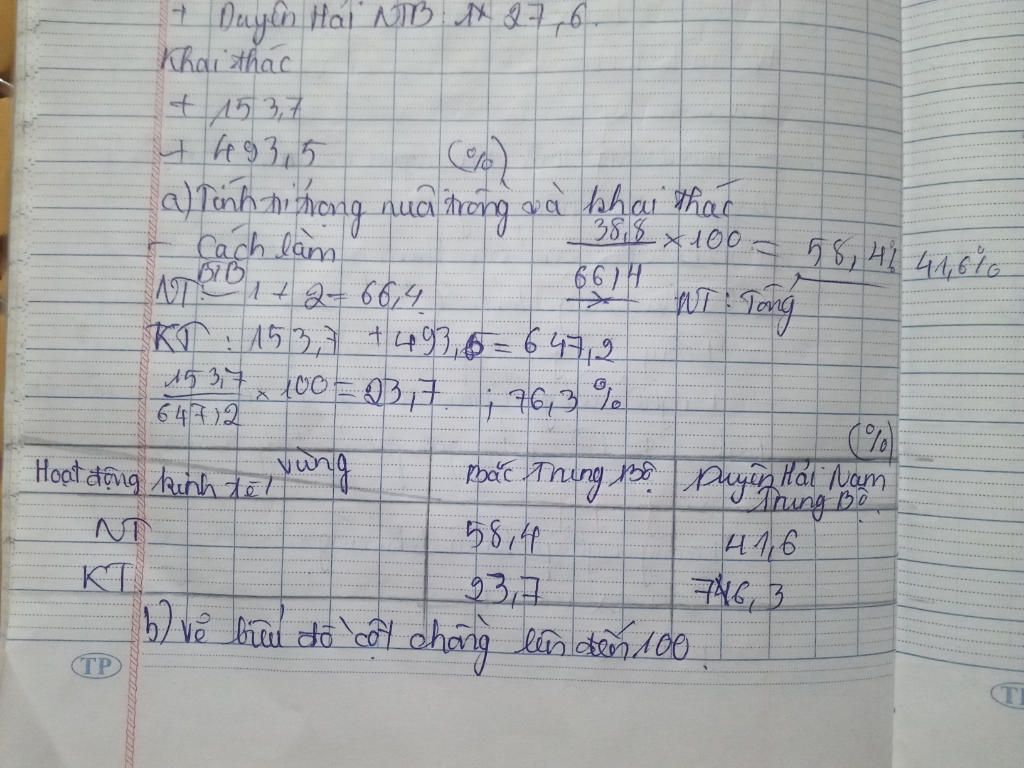 + Duyên Hải NTB 1* 27,6.
Khai thác
+ 153,7
+ 493,5 (%)
a) Tính tỉ trọng nuôi trồng và khai thác
- Cách làm 38,8 × 100 = 58,4% 41,6%
BTB 66,4 NT : Tổng
NT: 1 + 2 = 66,4
KT : 153,7 + 493,5 = 647,2
153,7 × 100 = 23,7 ; 76,3 %
647,2
(%)
Hoạt động kinh tế Vùng Bắc Trung Bộ Duyên Hải Nam
Trung Bộ
NT 58,4 41,6
KT 23,7 76,3
b) Vẽ biểu đồ cột chồng lên đến 100.
TP